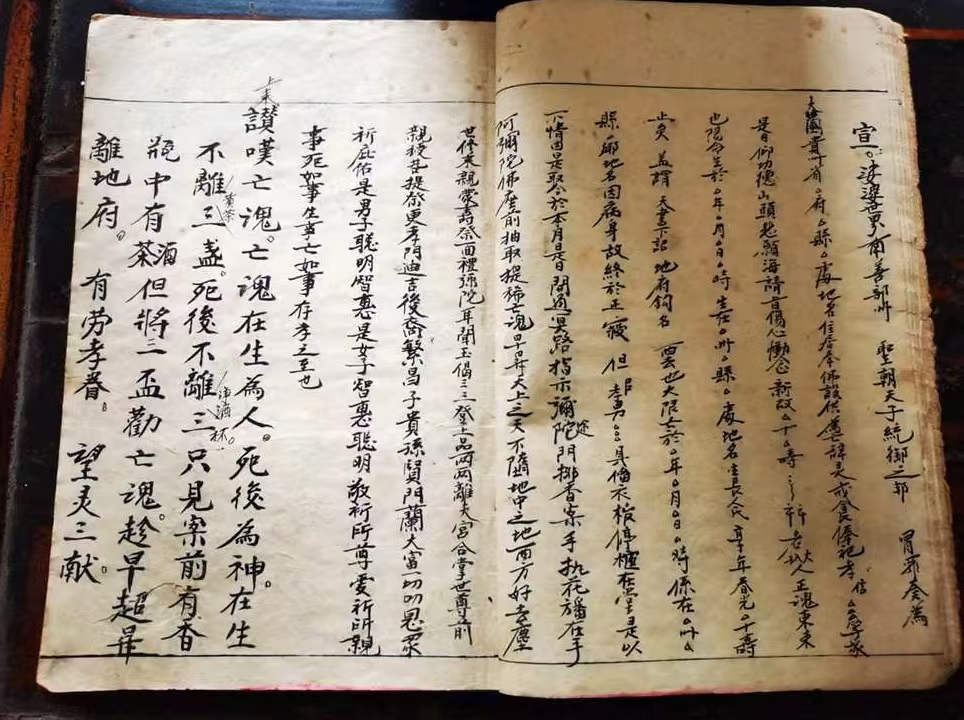 宣。娑婆世界南善部州 聖朝天子統御之邦 冒罪奏為
大國貴州省。府。縣。處地名住居奉佛設供薦辞灵戒食傣祀孝信。。合家
是日仰功德山頭起翰海請旨傷心慟念新故。十。時 老大人正魂東來
也陽命生於。年。月。日。時生在。州。縣。處地名生長人氏享年春光。十壽
止矣 盖謂天書下詔 地府鈎名 西去也大限亡於。年。月。日。時係在。州。
縣。處地名因病身故終於正寢 但 孝男。。具備衣棺停柩在堂是以
下情因是取今於本月是日開通冥路指示彌陀門挪香案手执花旛在手
阿彌陀佛座前抽取提称亡魂早昇天上之天不墮地中之地西方好去塵
世修來親蒙壽祭面禮彌陀耳聞玉偈三三登上品兩兩離夫宮合掌世尊前
親授菩提祭更孝門迪吉後裔繁昌子貴孫賢門蘭大富一切叨恩眾
祈庇佑是男子聪明智惠是女子智惠聪明敬祈所尊爱祈所親
事死如事生事亡如事存孝之至也
上來讃嘆亡魂。亡魂在生為人。死後為神。在生
不離三黃茶盏。死後不離三净酒杯。只見案前有香
瓶中有茶酒但將二盃勸亡魂。趁早超昇
離地府。 有劳孝眷。 望灵三献。